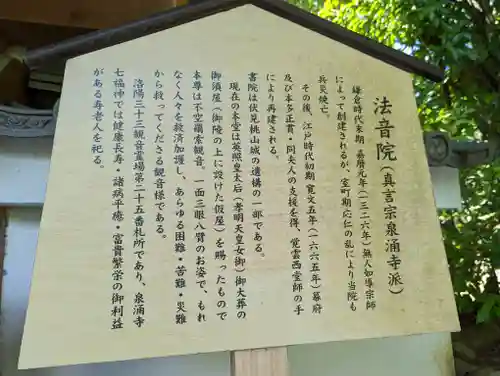 法音院(真言宗泉涌寺派)
鎌倉時代末期、嘉暦元年(一三二六年)無人如導宗師
によって創建されるが、室町期応仁の乱により当院も
兵災焼亡。
その後、江戸時代初期、寛文五年(一六六五年)幕府
及び本多正貫・同夫人の支援を得、覚雲西堂師の手
により再建される。
書院は伏見桃山城の遺構の一部である。
現在の本堂は英照皇太后(孝明天皇女御)御大葬の
御須屋(御陵の上に設けた仮屋)を賜ったもので
本尊は不空羂索観音。一面三眼八臂のお姿で、もれ
なく人々を救済加護し、あらゆる困難・苦難・災難
から救ってくださる観音様である。
洛陽三十三観音霊場第二十五番札所であり、泉涌寺
七福神では健康長寿・諸病平癒・富貴繁栄の御利益
がある寿老人を祀る。